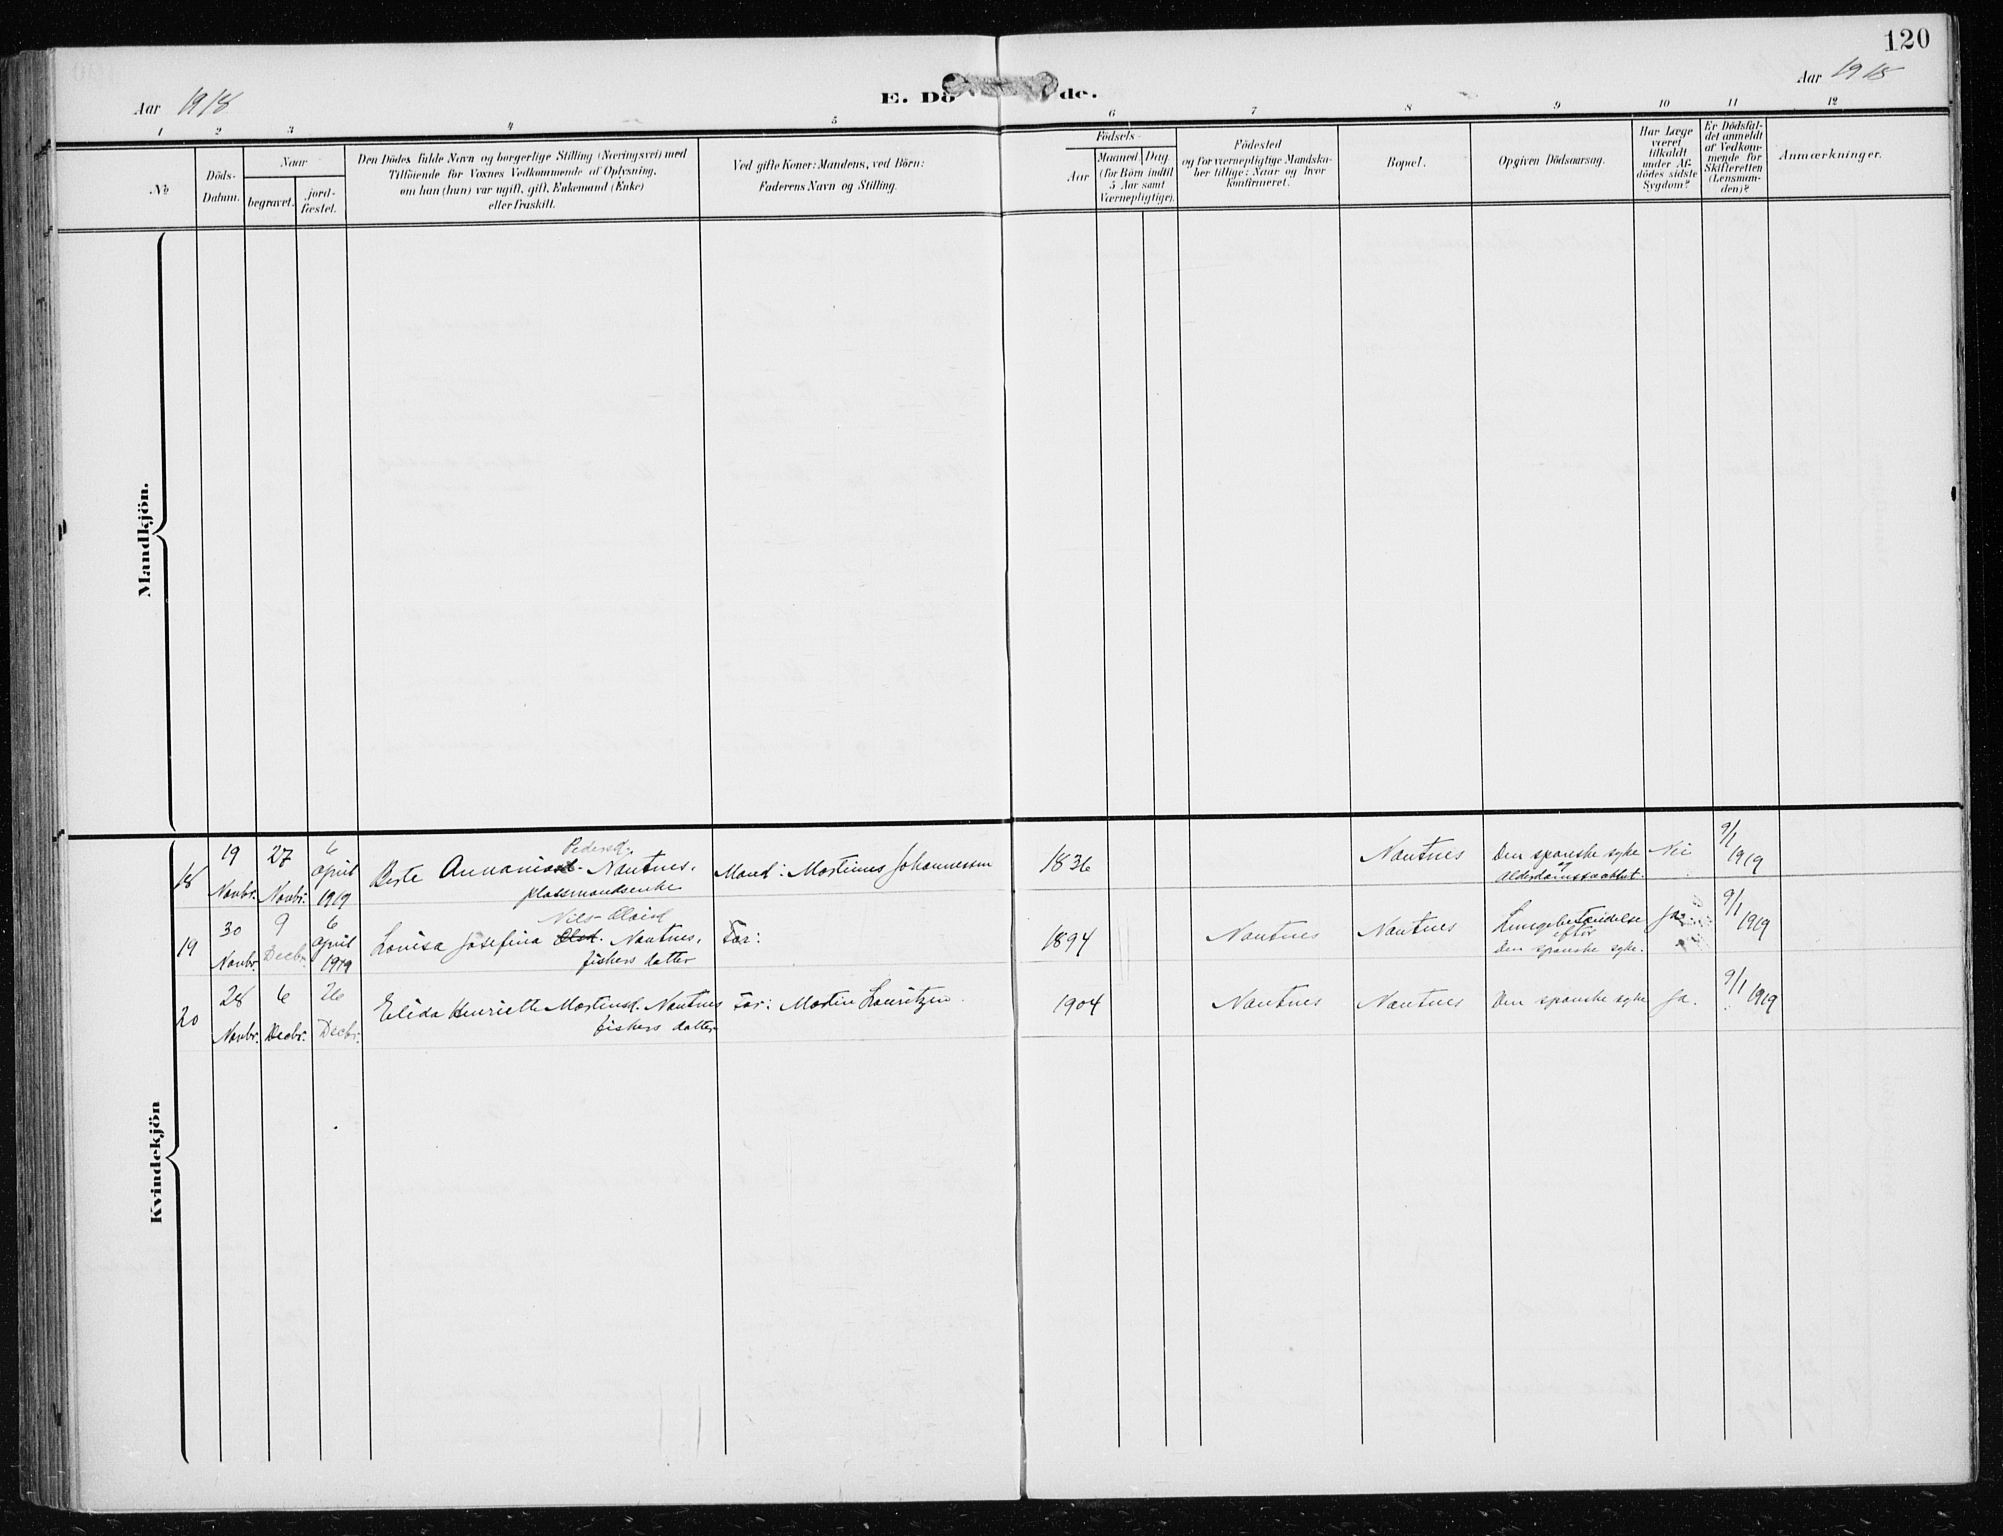 120
Aar 1918
E. Dö de.
Aar 1918
1 2 3 4 5 6 7 8 9 10 11 12
No
Döds-
Datum.
Naar
begravet.
jord-
fæstet.
Den Dödes fulde Navn og borgerlige Stilling (Næringsvei) med
Tilföiende for Voxnes Vedkommende af Oplysning,
om han (hun) var ugift, gift, Enkemand (Enke)
eller fraskilt.
Ved gifte Koner: Mandens, ved Börn:
Faderens Navn og Stilling.
Födsels-
Aar
Maaned Dag
(for Börn indtil
5 Aar samt
Værnepligtige).
Födested
og for værnepligtige Mandska-
ber tillige: Naar og hvor
konfirmeret.
Bopæl.
Opgiven Dödsaarsag.
Har Læge
været
tilkaldt
under Af-
dödes sidste
Sygdom?
Er Dödsfal-
det anmeldt
af Vedkom-
mende for
Skifteretten
(Lensman-
den)?
Anmærkninger.
Mandkjön.
Kvindekjön
18
19
Novbr.
27
Novbr.
6
april
1919
Pedersd.
Berte Nautnes.
plassmandsenke
Mand: Martinus Johannessen
1836
Nautnes
Den spanske syke
og
Alderdomssvakhet.
Nei
9/1
1919
19
30
Novbr.
9
Decbr.
6
april
1919
Lovisa Josefina Olsd. Nautnes.
fiskers datter
Far:
1894
Nautnes
Nautnes
Lungebetændelse
efter
Den spanske syke.
Ja
9/1
1919
20
28
Novbr.
6
Decbr.
26
Decbr.
Elida Henriette Martinsd. Nautnes
fiskers datter
Far: Martin Lauritzen.
1904
Nautnes
Nautnes
Den spanske syke
Ja.
9/1 1919